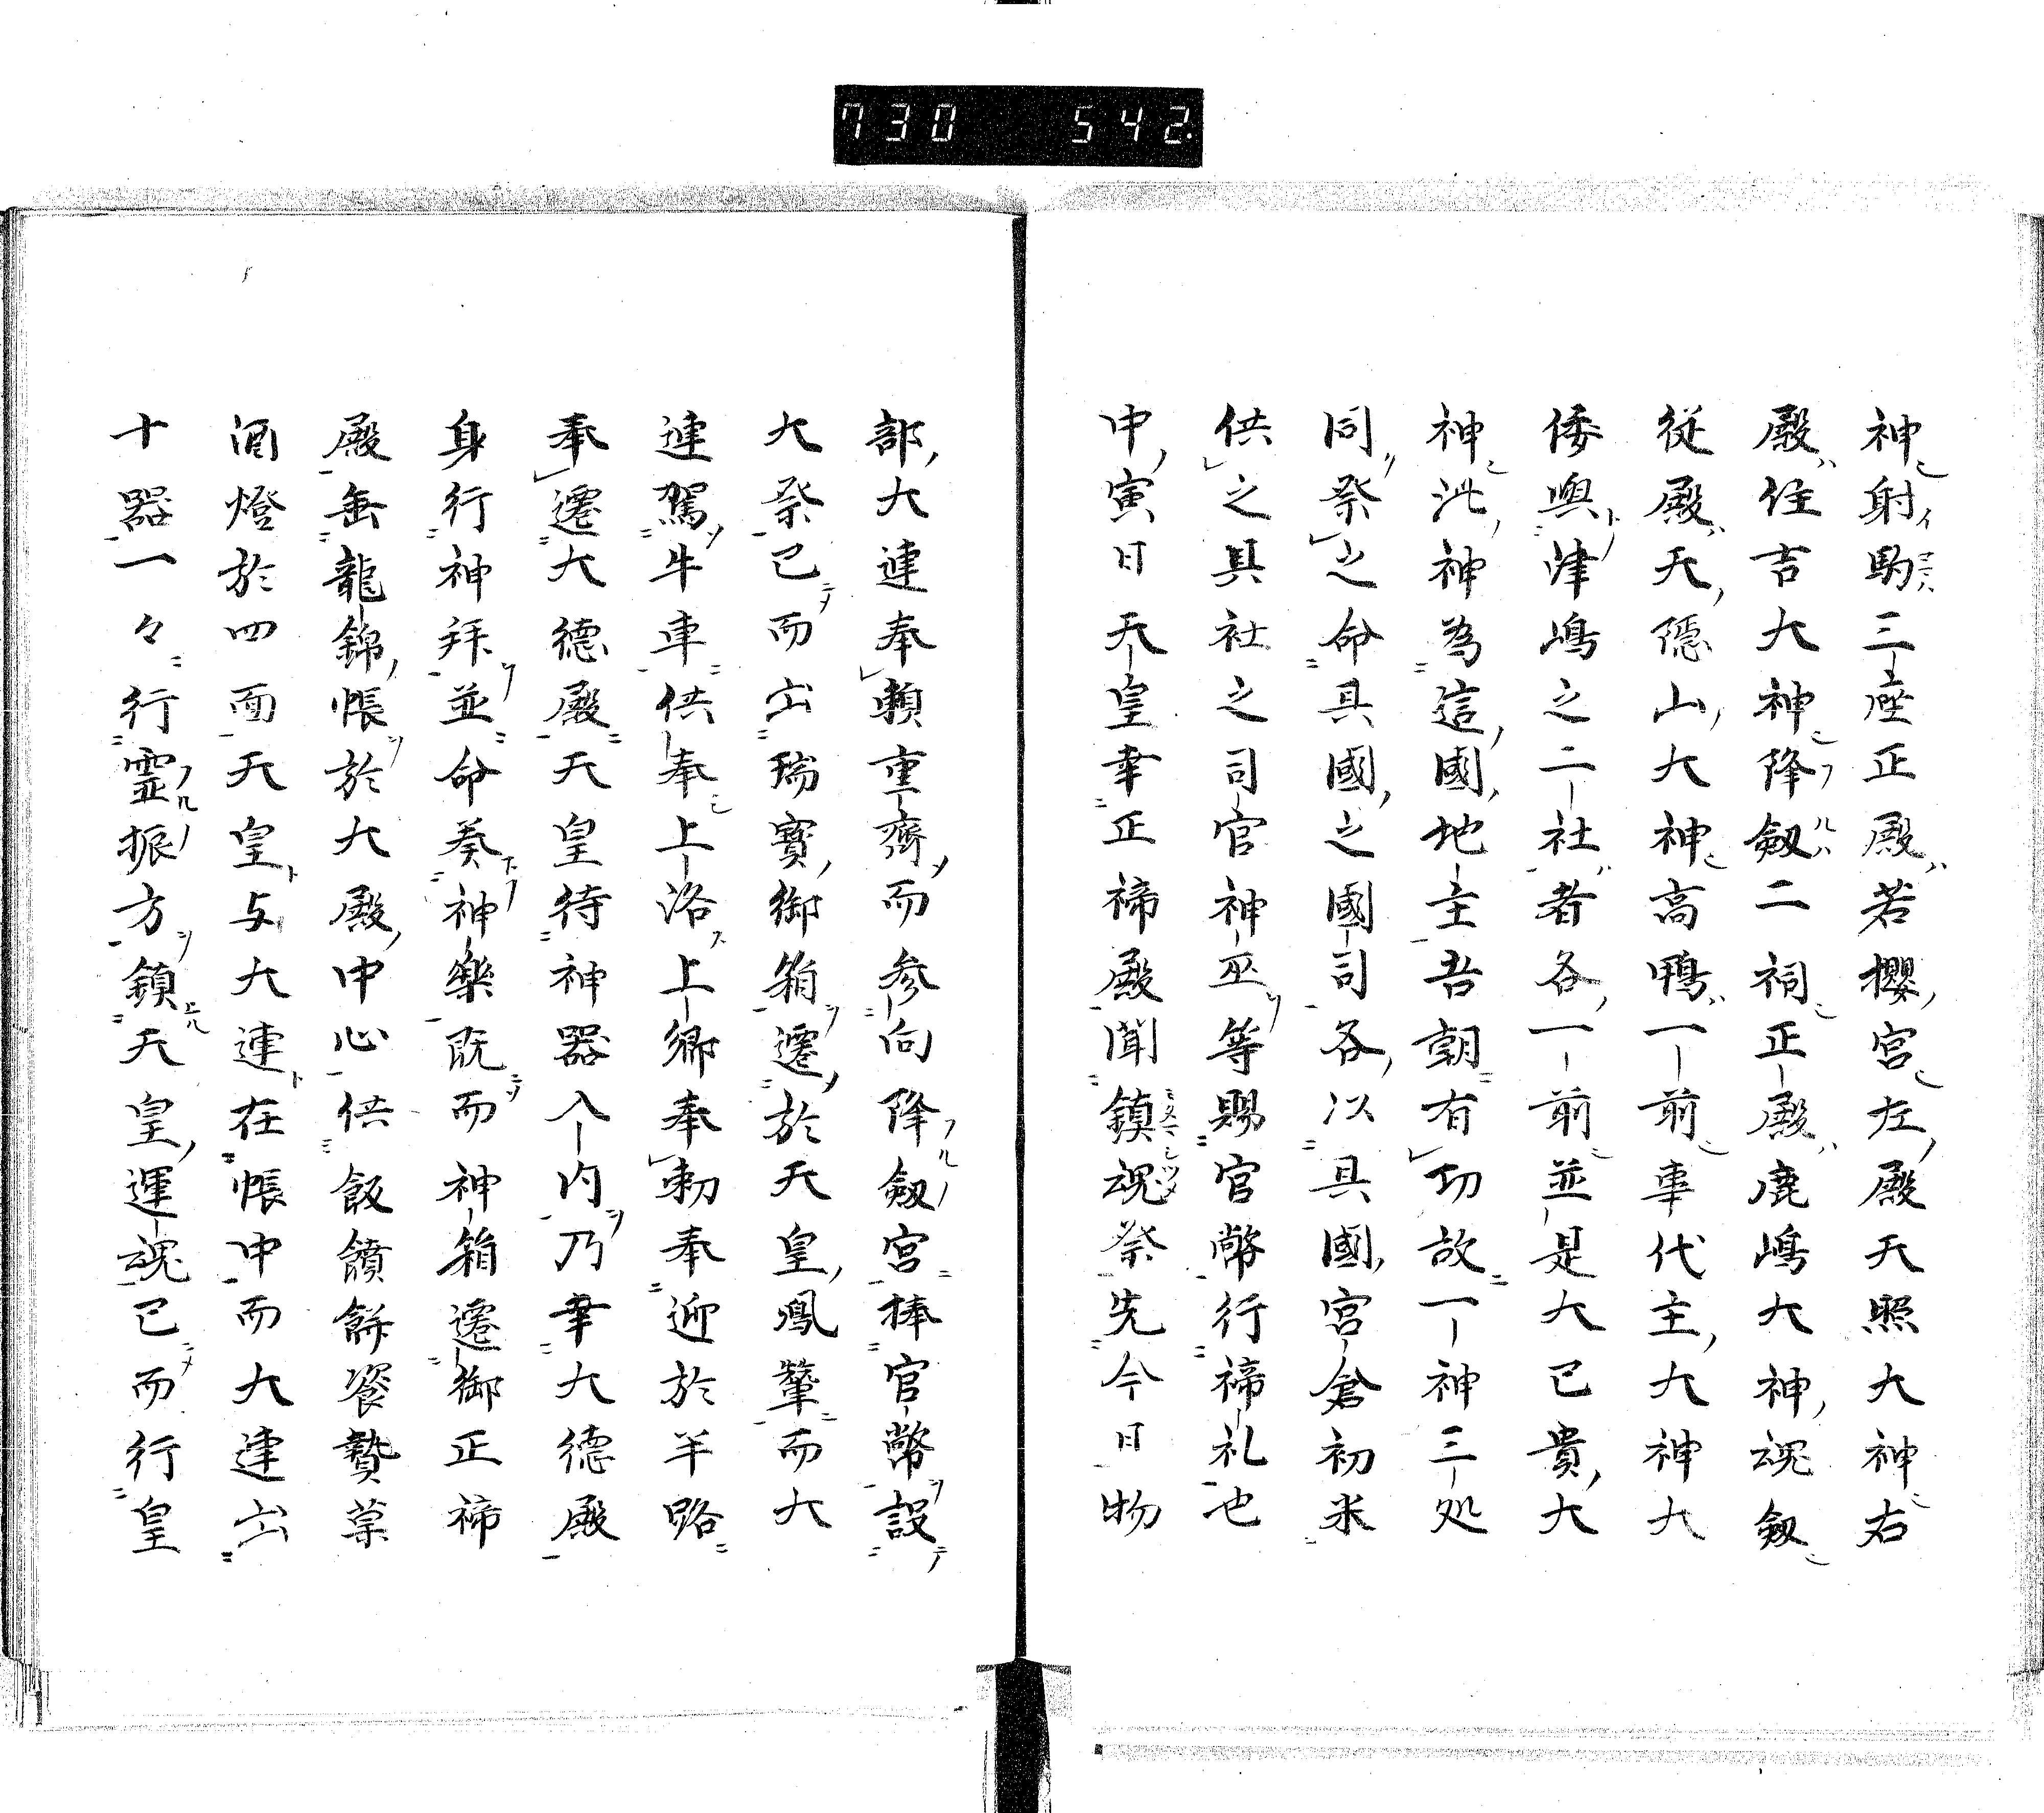 730 542
神射駒三座正殿若櫻宮左殿天照大神右
殿住吉大神降劔二祠正殿鹿嶋大神魂劔
従殿天隠山大神高鴨一前事代主大神大
倭與津嶋之二社者各一前並是大已貴大
神此神為這國地主吾朝有功故一神三処
同祭之命具國之國司各以具國宮倉初米
供之具社之司官神巫等賜官幣行禘礼也
申寅日天皇幸正禘殿聞鎮魂祭先今日物
部大連奉賴重齋而参向降劔宮捧官幣設
大祭已而出瑞寳御箱遷於天皇鳳輦而大
連駕牛車供奉上洛上卿奉勅奉迎於半路
奉遷大德殿天皇待神器入内乃幸大德殿
身行神拜並命奏神樂既而神箱遷御正禘
殿缶龍錦帳於大殿中心供飯饋餅餈贄菓
酒燈於四面天皇与大連在帳中而大連出
十器一々行霊振方鎮天皇運魂已而行皇